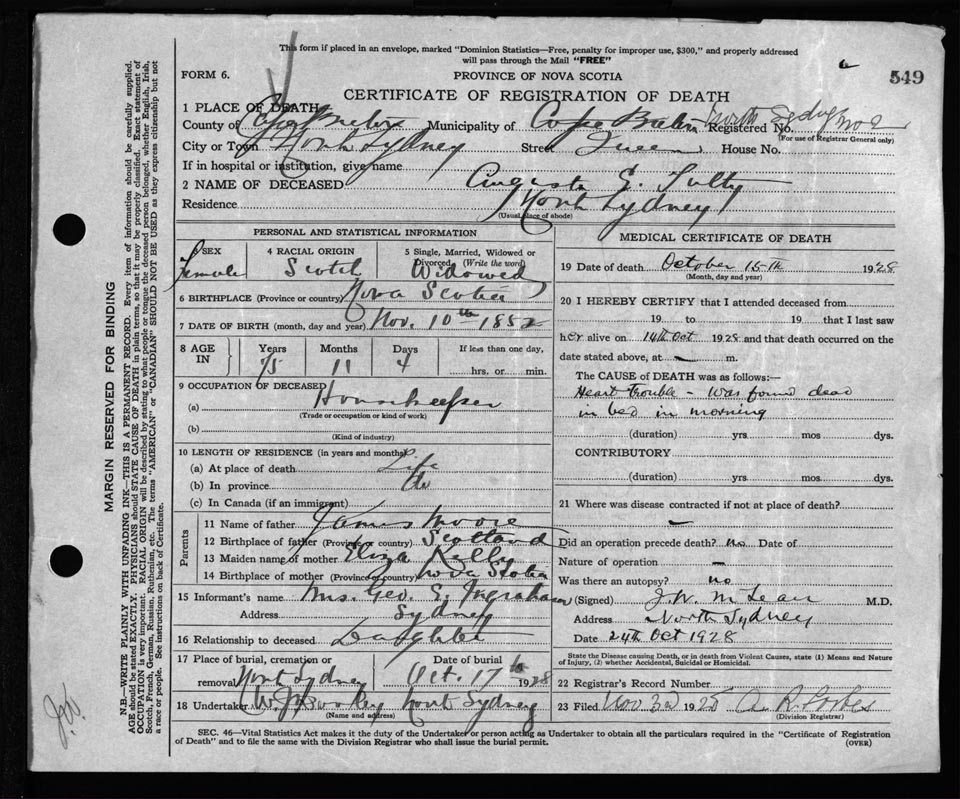 This form if placed in an envelope, marked "Dominion Statistics—Free, penalty for improper use, $300," and properly addressed
will pass through the Mail "FREE"
FORM 6. PROVINCE OF NOVA SCOTIA 549
CERTIFICATE OF REGISTRATION OF DEATH
1 PLACE OF DEATH
County of Cape Breton Municipality of Cape Breton Registered No. North Sydney No 2
(For use of Registrar General only)
City or Town North Sydney Street Queen House No.
If in hospital or institution, give name
2 NAME OF DECEASED Augusta E. Tulty
Residence North Sydney
(Usual place of abode)
PERSONAL AND STATISTICAL INFORMATION
3 SEX Female
4 RACIAL ORIGIN Scotch
5 Single, Married, Widowed or Divorced (Write the word) Widowed
6 BIRTHPLACE (Province or country) Nova Scotia
7 DATE OF BIRTH (month, day and year) Nov. 10th 1852
8 AGE IN Years 75 Months 11 Days 4 If less than one day, hrs. or min.
9 OCCUPATION OF DECEASED
(a) Housekeeper
(Trade or occupation or kind of work)
(b)
(Kind of industry)
10 LENGTH OF RESIDENCE (in years and months)
(a) At place of death Life
(b) In province do
(c) In Canada (if an immigrant)
Parents
11 Name of father James Moore
12 Birthplace of father (Province or country) Scotland
13 Maiden name of mother Eliza Kelly
14 Birthplace of mother (Province or country) Nova Scotia
15 Informant's name Mrs. Geo. E. Ingraham
Address Sydney
16 Relationship to deceased Daughter
17 Place of burial, cremation or removal North Sydney Date of burial Oct. 17th 1928
18 Undertaker North Sydney
(Name and address)
MEDICAL CERTIFICATE OF DEATH
19 Date of death October 15th 1928
(Month, day and year)
20 I HEREBY CERTIFY that I attended deceased from
19 to 19 that I last saw
her alive on 14th Oct 1928 and that death occurred on the
date stated above, at — m.
The CAUSE of DEATH was as follows:—
Heart trouble - was found dead
in bed in morning
(duration) yrs. mos. dys.
CONTRIBUTORY
(duration) yrs. mos. dys.
21 Where was disease contracted if not at place of death?
—
Did an operation precede death? no Date of
Nature of operation —
Was there an autopsy? no
(Signed) J. W. McLean M.D.
Address North Sydney
Date 24th Oct 1928
State the Disease causing Death, or in death from Violent Causes, state (1) Means and Nature
of Injury, (2) whether Accidental, Suicidal or Homicidal.
22 Registrar's Record Number
23 Filed Nov 3rd 1928 A. R. Forbes
(Division Registrar)
SEC. 46—Vital Statistics Act makes it the duty of the Undertaker or person acting as Undertaker to obtain all the particulars required in the "Certificate of Registration
of Death" and to file the same with the Division Registrar who shall issue the burial permit. (OVER)
MARGIN RESERVED FOR BINDING
N.B.—WRITE PLAINLY WITH UNFADING INK—THIS IS A PERMANENT RECORD. Every item of information should be carefully supplied.
AGE should be stated EXACTLY. PHYSICIANS should STATE CAUSE OF DEATH in plain terms, so that it may be properly classified. Exact statement of
OCCUPATION is very important. RACIAL ORIGIN will be described by stating to what people or tongue the deceased person belonged, whether English, Irish,
Scotch, French, German, Russian, Ruthenian, etc. The terms "AMERICAN" or "CANADIAN" SHOULD NOT BE USED as they express citizenship but not
a race or people. See instructions on back of Certificate.